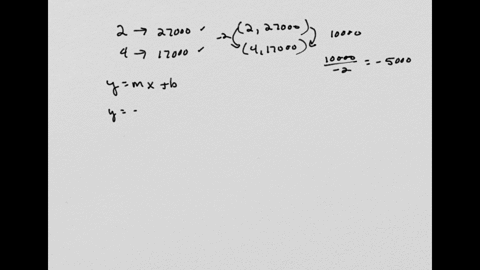 2 → 27000 ✓ (2, 27000) 10000
4 → 17000 ✓ -2 (4, 17000)
10000/-2 = -5000
y = mx + b
y = -